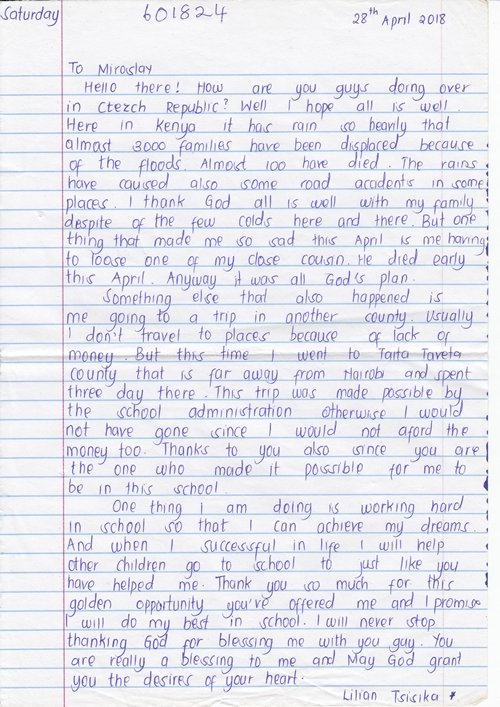 Saturday 601824 28th April 2018
To Miroslav
Hello there! How are you guys doing over
in Ctezch Republic? Well I hope all is well.
Here in Kenya it has rain so heavily that
almost 3000 families have been displaced because
of the floods. Almost 100 have died. The rains
have caused also some road accidents in some
places. I thank God all is well with my family
despite of the few colds here and there. But one
thing that made me so sad this April is me having
to loose one of my close cousin. He died early
this April. Anyway it was all God's plan.
Something else that also happened is
me going to a trip in another county. Usually
I don't travel to places because of lack of
money. But this time I went to Taita Taveta
county that is far away from Nairobi and spent
three day there. This trip was made possible by
the school administration otherwise I would
not have gone since I would not aford the
money too. Thanks to you also since you are
the one who made it possible for me to
be in this school.
One thing I am doing is working hard
in school so that I can achieve my dreams.
And when I successful in life I will help
other children go to school to just like you
have helped me. Thank you so much for this
golden opportunity you've offered me and I promise
I will do my best in school. I will never stop
thanking God for blessing me with you guy. You
are really a blessing to me and May God grant
you the desires of your heart.
Lilian Tsisika